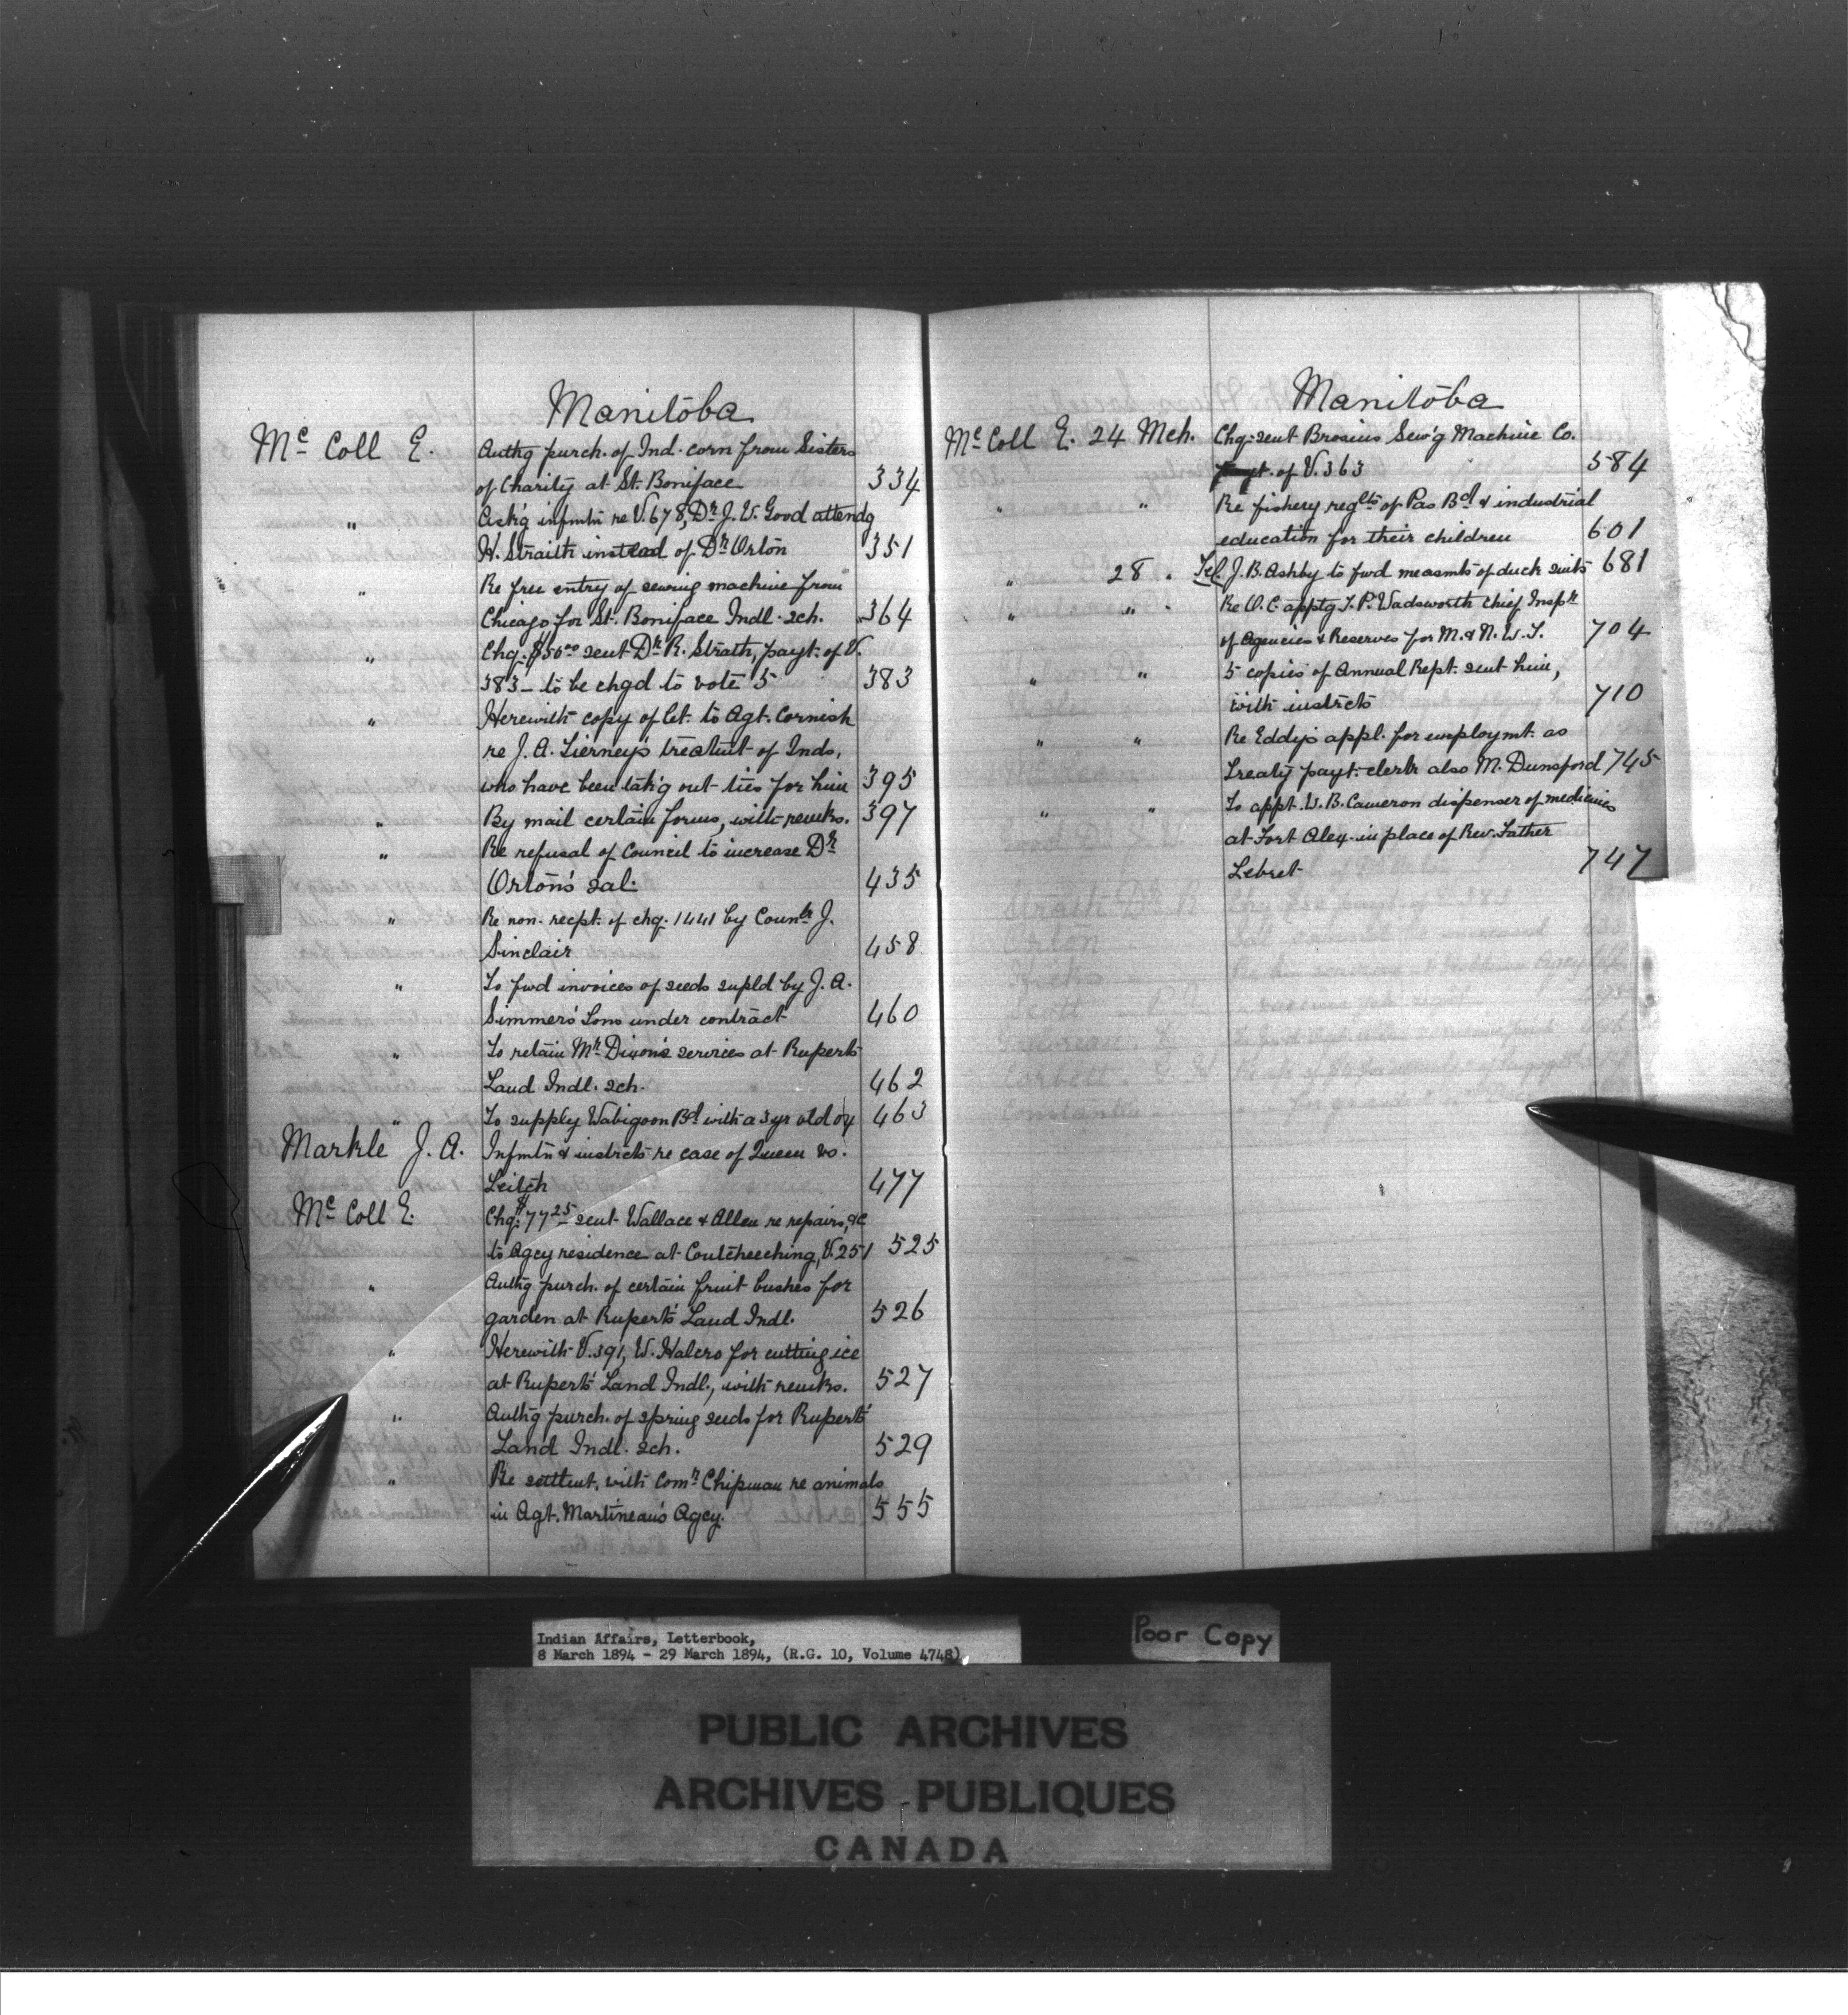 Manitoba
Mc Coll E. Authg purch. of Ind. corn from Sisters
of Charity at St. Boniface 334
" Ask'g infmtn re V. 678, Dr J. W. Good attendg
H. Straith instead of Dr Orton 351
" Re free entry of sewing machine from
Chicago for St. Boniface Indl. sch. 364
" Chq. $50.00 sent Dr R. Strath, payt. of V.
383 - to be chgd to vote 5 383
" Herewith copy of let. to Agt. Cornish
re J. A. Tierney's treatmt of Inds.
who have been tak'g out ties for him 395
" By mail certain forms, with remks. 397
" Re refusal of Council to increase Dr
Orton's sal. 435
" Re non-recpt. of chq. 1441 by Counlr J.
Sinclair 458
" To fwd invoices of seeds supld by J. A.
Simmers' Sons under contract 460
" To retain Mr Dixon's services at Ruperts
Land Indl. sch. 462
" To supply Wabigoon Bd with a 3 yr old ox 463
Markle J. A. Infmtn & instrcts re case of Queen vs.
Leitch 477
Mc Coll E. Chq. $77.25 sent Wallace & Allen re repairs, &c
to Agcy residence at Coutcheeching, V. 251 525
" Authg purch. of certain fruit bushes for
garden at Rupert's Land Indl. 526
" Herewith V. 391, W. Halcro for cutting ice
at Rupert's Land Indl., with remks. 527
" Authg purch. of spring seeds for Rupert's
Land Indl. sch. 529
" Re settlmt. with Comr Chipman re animals
in Agt. Martineau's Agcy. 555
Manitoba
Mc Coll E. 24 Mch. Chq. sent Brosius Sew'g Machine Co.
payt. of V. 363 584
" " Re fishery reglts of Pas Bd & industrial
education for their children 601
" 28 " Tel. J. B. Ashby to fwd measmts of duck suits 681
" " " Re O.C. apptg T. P. Wadsworth chief Inspr
of Agencies & Reserves for M. & N. W. T. 704
" " 5 copies of Annual Rept. sent him,
with instrcts 710
" " Re Eddy's appl. for employmt. as
Treaty payt. clerk also M. Dunsford 745
" " To appt. W. B. Cameron dispenser of medicines
at Fort Alex. in place of Rev. Father
Lebret 747
Indian Affairs, Letterbook,
8 March 1894 - 29 March 1894, (R.G. 10, Volume 4748)
Poor Copy
PUBLIC ARCHIVES
ARCHIVES PUBLIQUES
CANADA